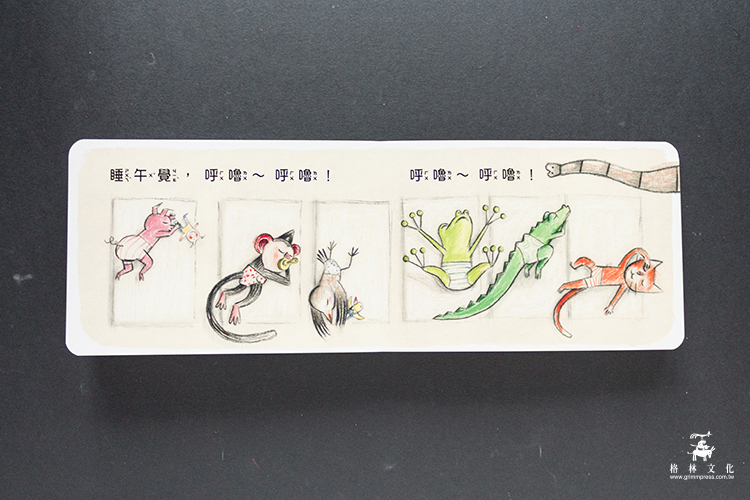 睡午覺，呼嚕～呼嚕！
呼嚕～呼嚕！
格林文化
www.grimmpress.com.tw